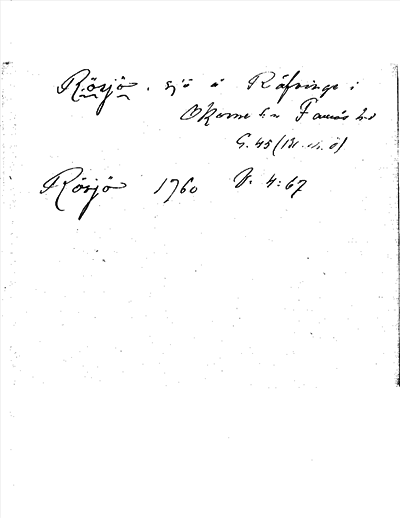 Rösjö, sjö å Råfvinge i
Okome sn Faurås hd
G. 45 (N. ch. ö)
Rösjö 1760 V. 4:67